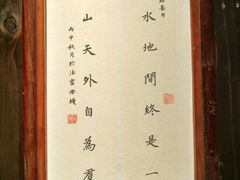 水地間終是一
山天外自為羣
丙申秋月於法雲